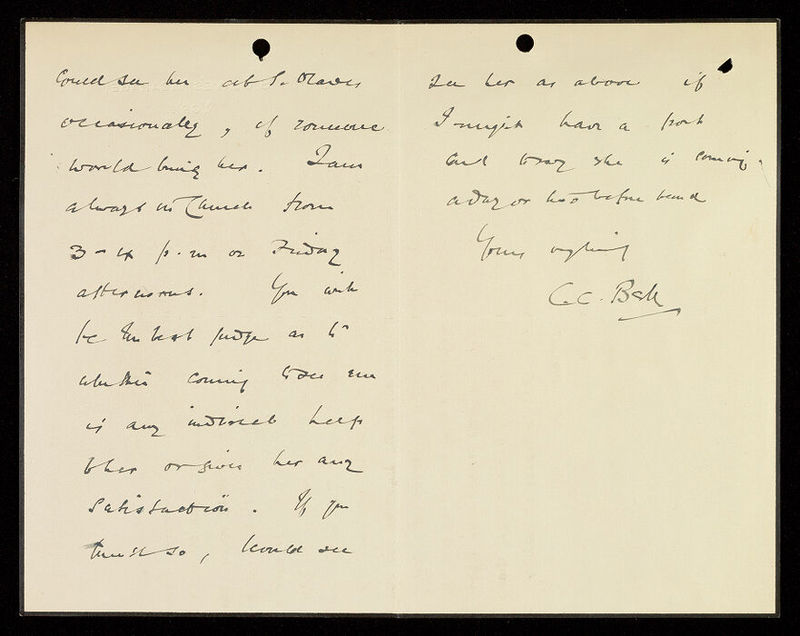 could see her at S. Olaves
occasionally, if someone
would bring her. I am
always in Church from
3-4 p.m on Friday
afternoons. You will
be the best judge as to
whether coming to see me
is any indirect help
to her or gives her any
satisfaction. If you
think so, I could see
see her as above if
I might have a post
card to say she is coming
a day or two before hand
Yours
C.C. Bell